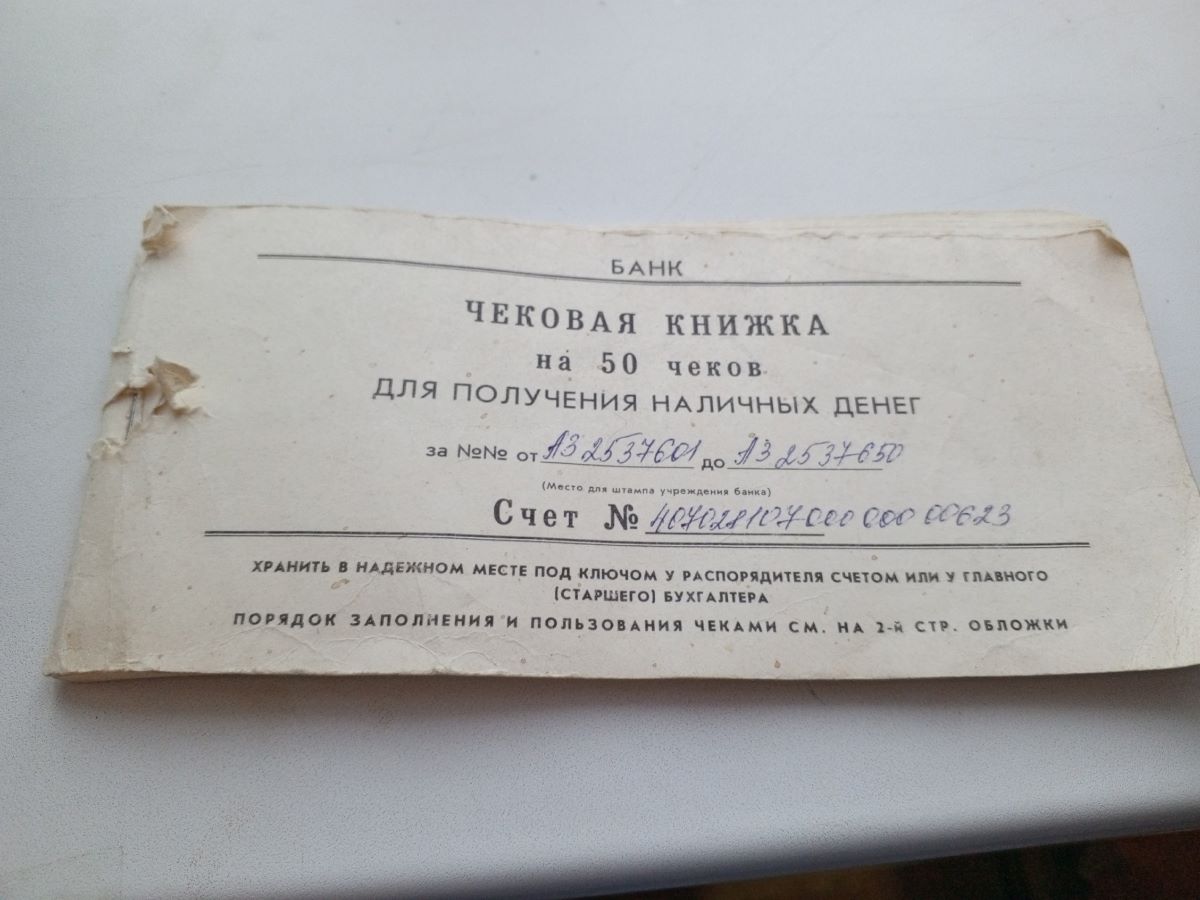 БАНК
ЧЕКОВАЯ КНИЖКА
на 50 чеков
ДЛЯ ПОЛУЧЕНИЯ НАЛИЧНЫХ ДЕНЕГ
за №№ от АЗ 2537601 до АЗ 2537650
(Место для штампа учреждения банка)
Счет № 40702810700000000623
ХРАНИТЬ В НАДЕЖНОМ МЕСТЕ ПОД КЛЮЧОМ У РАСПОРЯДИТЕЛЯ СЧЕТОМ ИЛИ У ГЛАВНОГО
(СТАРШЕГО) БУХГАЛТЕРА
ПОРЯДОК ЗАПОЛНЕНИЯ И ПОЛЬЗОВАНИЯ ЧЕКАМИ СМ. НА 2-й СТР. ОБЛОЖКИ